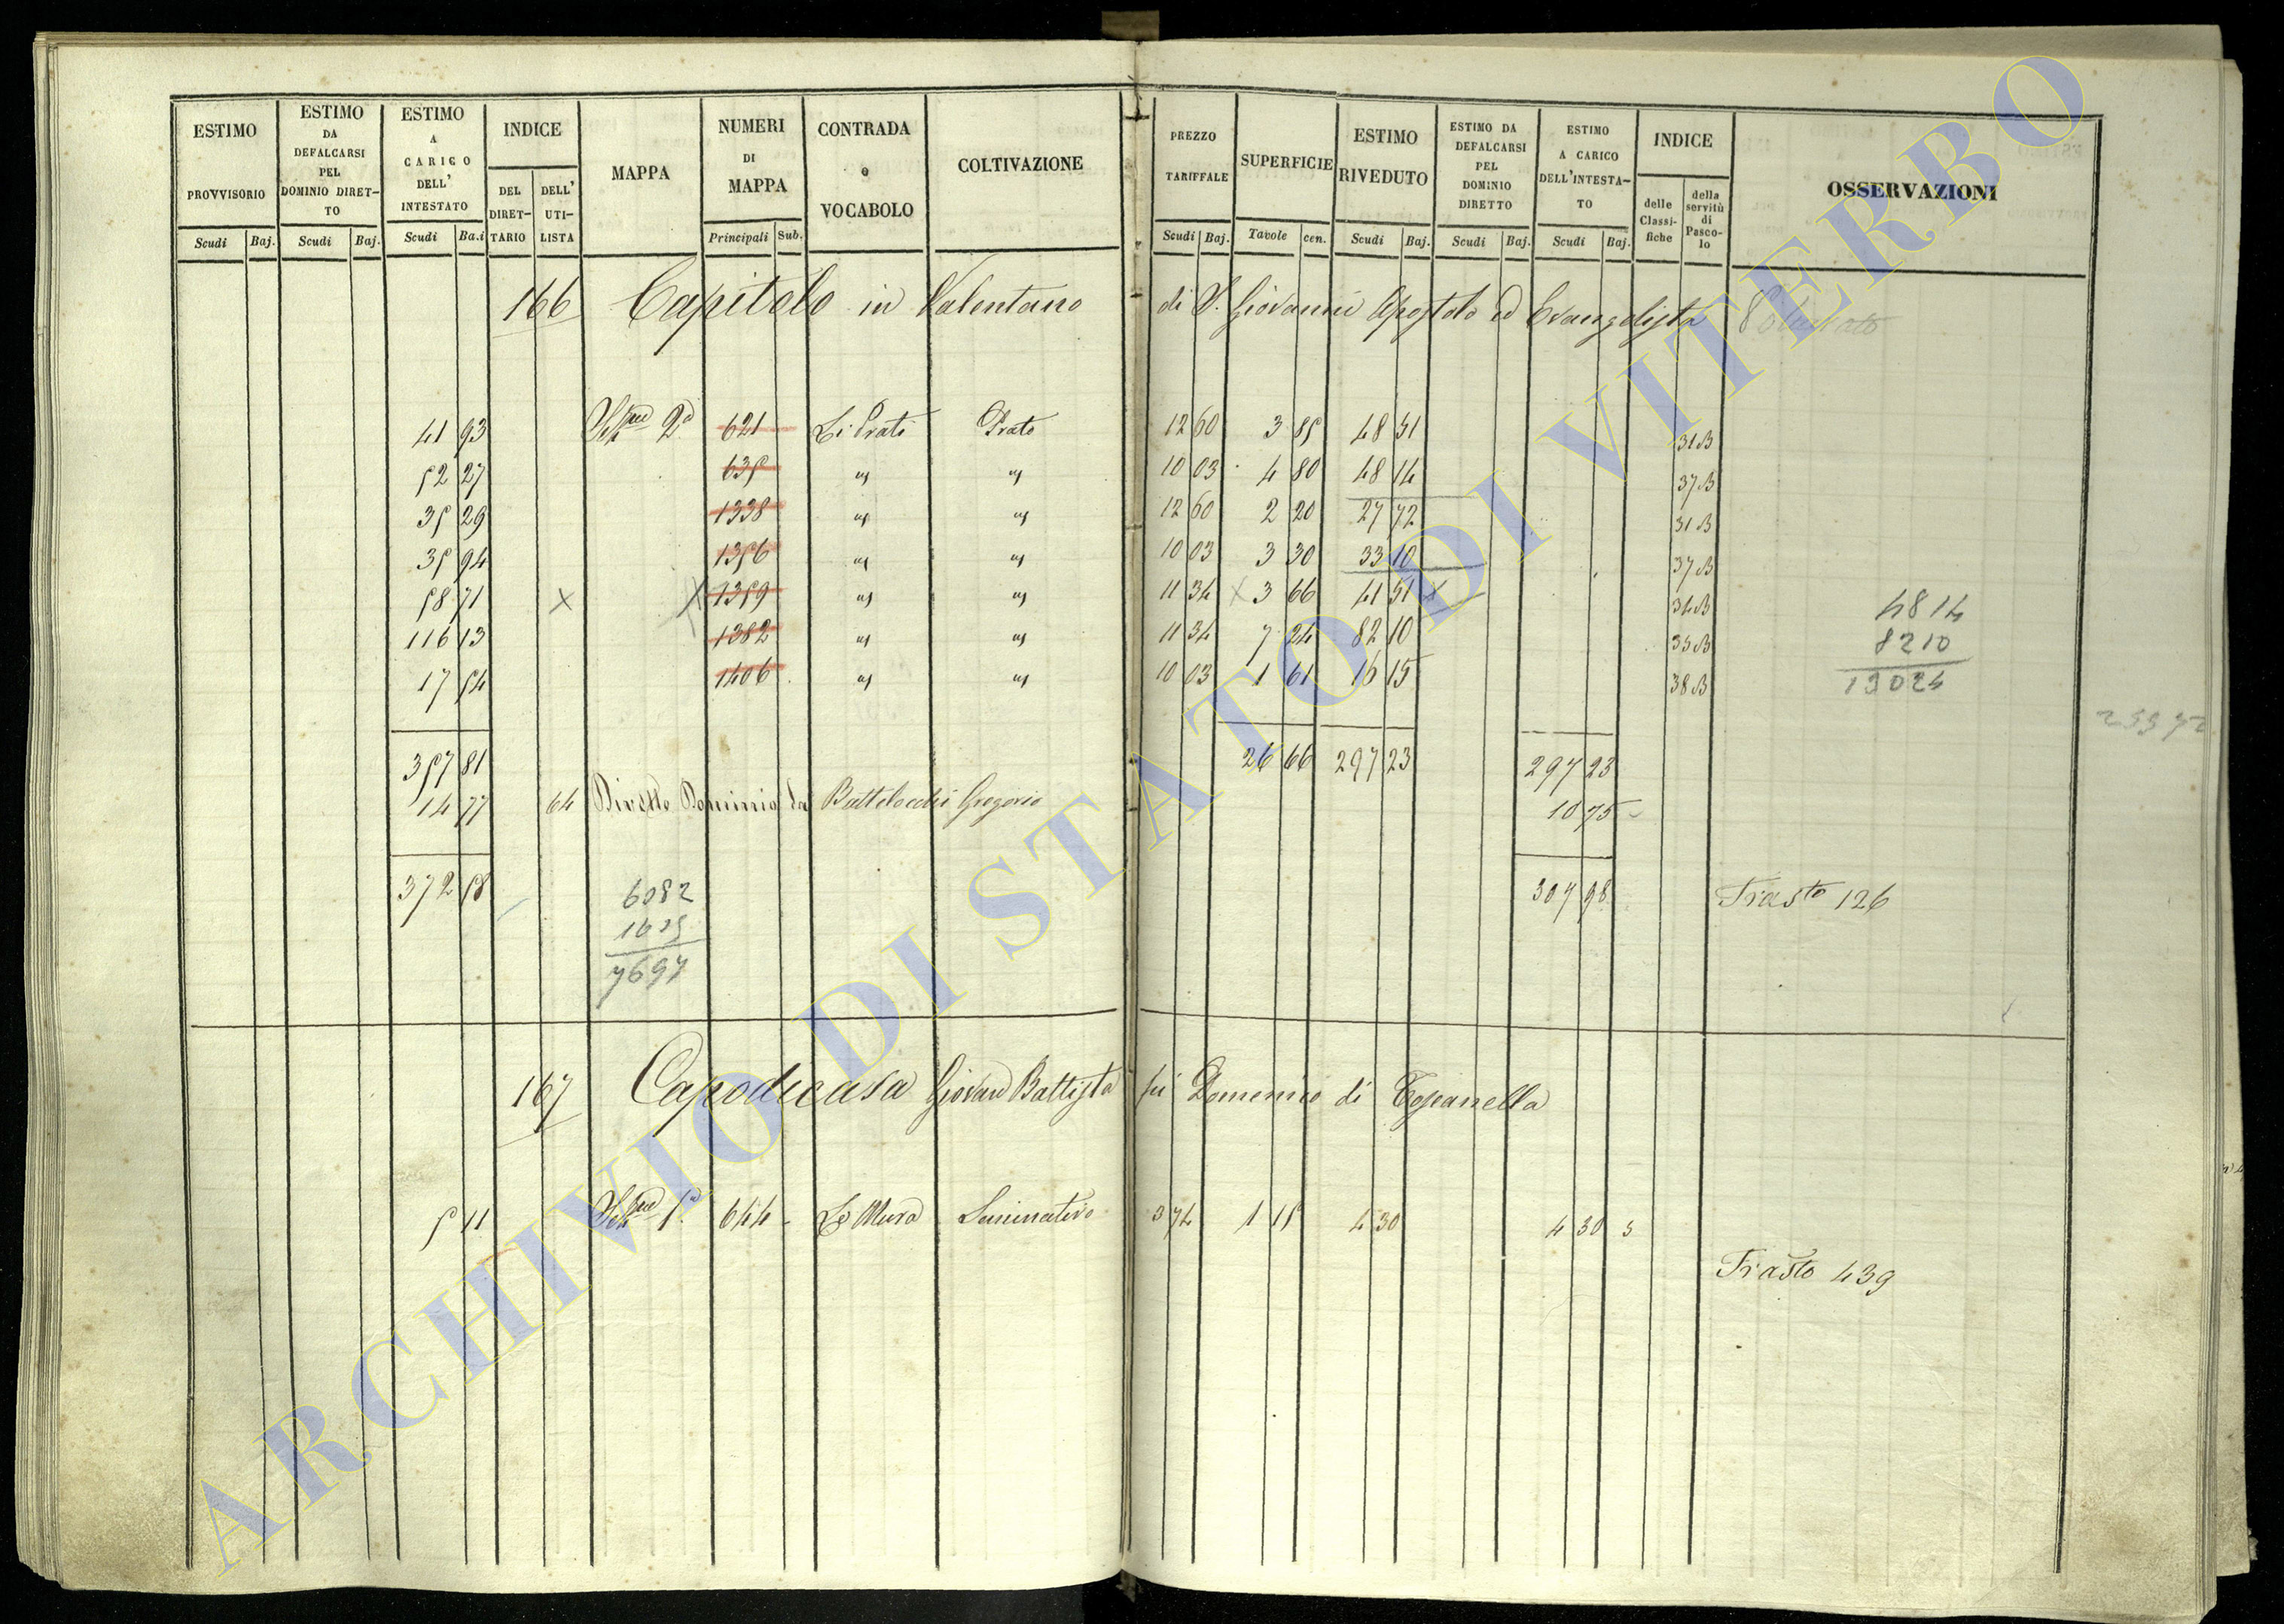 ESTIMO PROVVISORIO Scudi Baj.
ESTIMO DA DEFALCARSI PEL DOMINIO DIRETTO Scudi Baj.
ESTIMO A CARICO DELL' INTESTATO Scudi Ba.i
INDICE DEL DIRETTARIO DELL' UTILISTA
MAPPA
NUMERI DI MAPPA Principali Sub.
CONTRADA o VOCABOLO
COLTIVAZIONE
PREZZO TARIFFALE Scudi Baj.
SUPERFICIE Tavole cen.
ESTIMO RIVEDUTO Scudi Baj.
ESTIMO DA DEFALCARSI PEL DOMINIO DIRETTO Scudi Baj.
ESTIMO A CARICO DELL'INTESTATO Scudi Baj.
INDICE delle Classifiche della servitù di Pascolo
OSSERVAZIONI
166 Capitolo in Valentano di S. Giovanni Apostolo ed Evangelista
41 93 Sez.ne 2a 621 Li Prati Prato 12 60 3 85 48 51 31B
52 27 635 " " 10 03 4 80 48 14 37B
35 29 1338 " " 12 60 2 20 27 72 31B
35 94 1356 " " 10 03 3 30 33 10 37B
58 71 X X 1359 " " 11 34 X 3 66 41 51 X 34B
116 13 1382 " " 11 34 7 24 82 10 33B
17 54 1406 " " 10 03 1 61 16 15 38B
4814
8210
13024
357 81 26 66 297 23 297 23
14 77 64 Diretto Dominio da Battelocchi Gregorio 10 75
372 58 307 98 Trasto 126
6082
1615
7697
167 Capodicasa Giovan Battista fu Domenico di Toscanella
5 11 Sez.ne 1a 644 Le Mura Seminativo 3 74 1 15 4 30 4 30 3
Trasto 439
ARCHIVIO DI STATO DI VITERBO